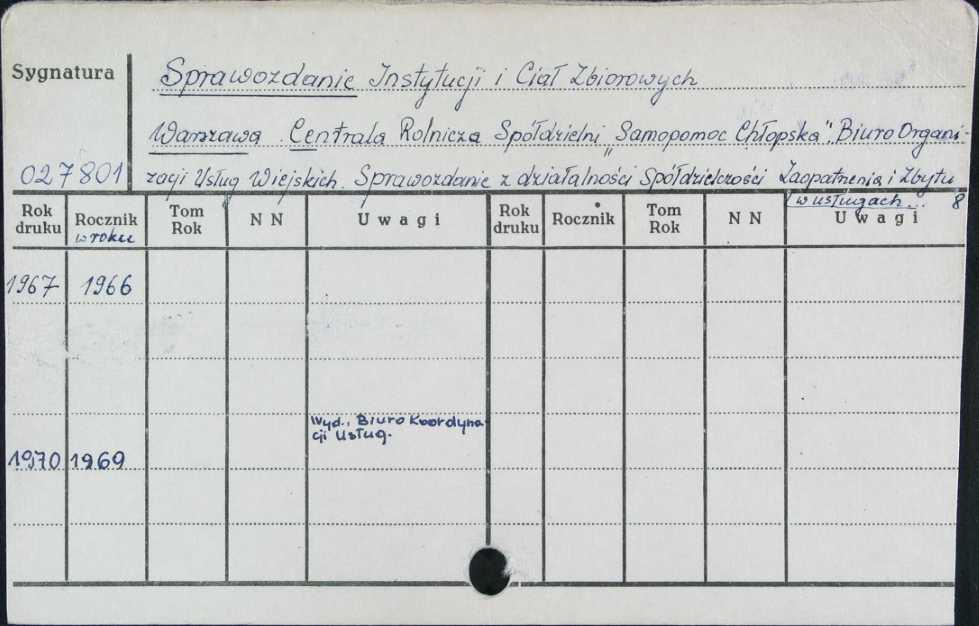 Sygnatura
Sprawozdanie Instytucji i Ciał Zbiorowych
Warszawa. Centrala Rolnicza Spółdzielni „Samopomoc Chłopska". Biuro Organi-
027801 zacji Usług Wiejskich. Sprawozdanie z działalności Spółdzielczości Zaopatrzenia i Zbytu
w usługach... 8
Rok druku Rocznik w roku Tom Rok N N Uwagi Rok druku Rocznik Tom Rok N N Uwagi
1967 1966
Wyd.. Biuro Koordyna-
cji Usług.
1970 1969